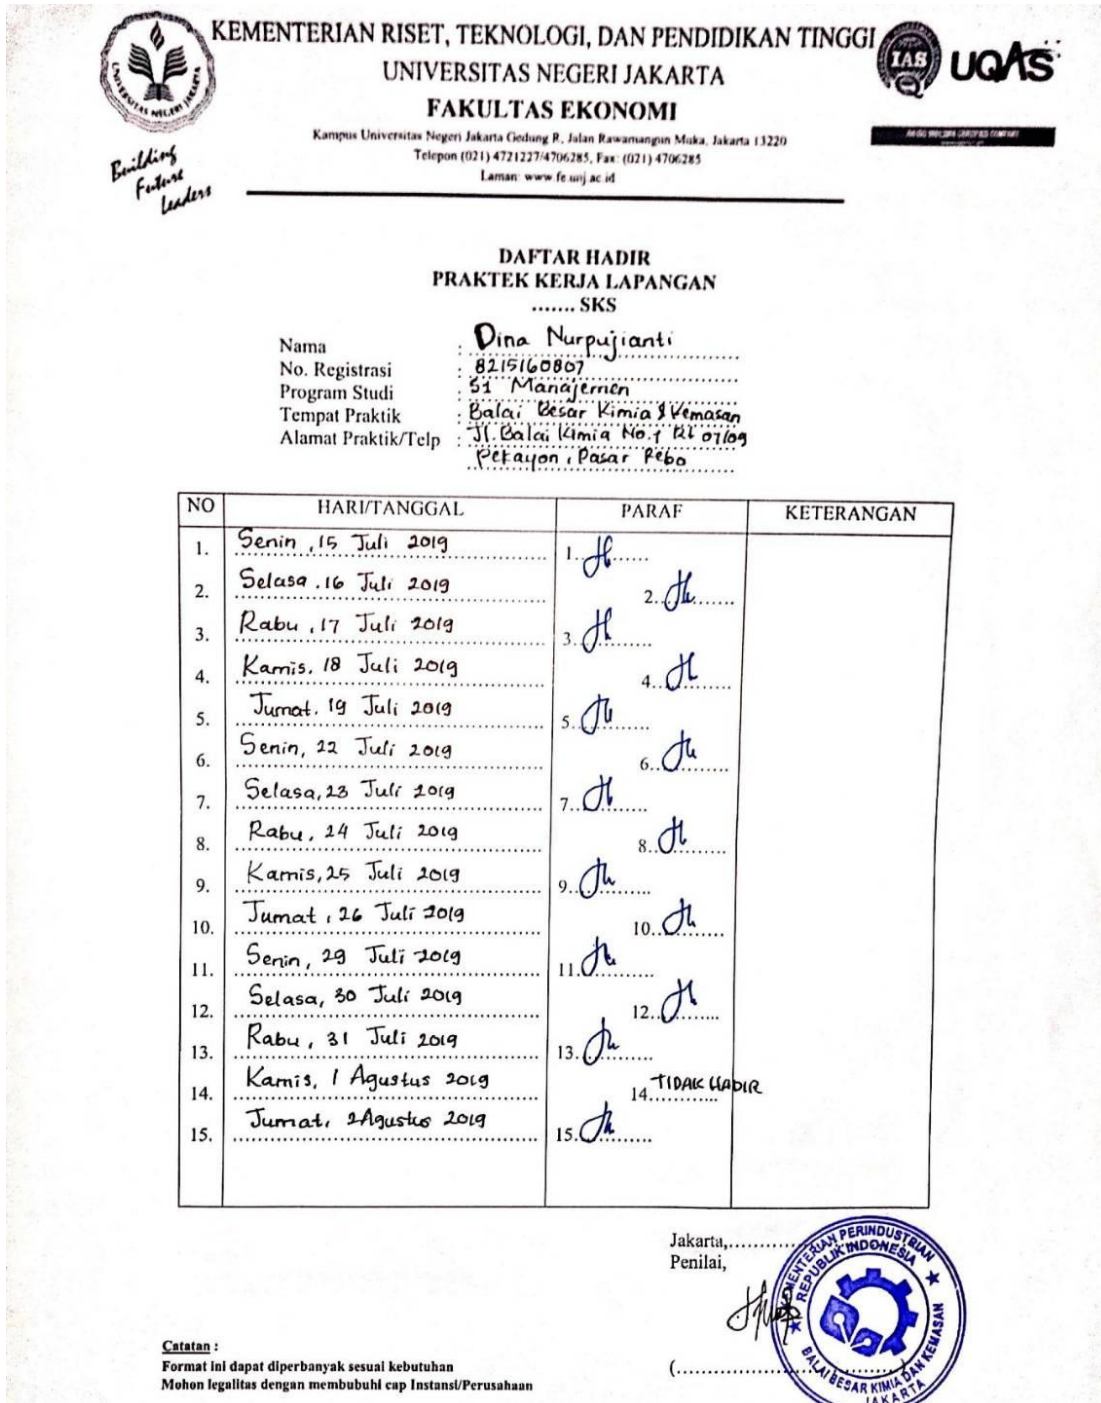 KEMENTERIAN RISET, TEKNOLOGI, DAN PENDIDIKAN TINGGI
UNIVERSITAS NEGERI JAKARTA
FAKULTAS EKONOMI
Kampus Universitas Negeri Jakarta Gedung R, Jalan Rawamangun Muka, Jakarta 13220
Telepon (021) 4721227/4706285, Fax: (021) 4706285
Laman: www.fe.unj.ac.id
UNIVERSITAS NEGERI JAKARTA
Building
Future
Leaders
IAS
UQAS
DAFTAR HADIR
PRAKTEK KERJA LAPANGAN
....... SKS
Nama : Dina Nurpujianti
No. Registrasi : 8215160807
Program Studi : S1 Manajemen
Tempat Praktik : Balai Besar Kimia & Kemasan
Alamat Praktik/Telp : Jl. Balai Kimia No.1 Rt 07/09
Pekayon, Pasar Rebo
NO HARI/TANGGAL PARAF KETERANGAN
1. Senin, 15 Juli 2019 1.
2. Selasa. 16 Juli 2019 2.
3. Rabu, 17 Juli 2019 3.
4. Kamis. 18 Juli 2019 4.
5. Jumat. 19 Juli 2019 5.
6. Senin, 22 Juli 2019 6.
7. Selasa, 23 Juli 2019 7.
8. Rabu, 24 Juli 2019 8.
9. Kamis, 25 Juli 2019 9.
10. Jumat, 26 Juli 2019 10.
11. Senin, 29 Juli 2019 11.
12. Selasa, 30 Juli 2019 12.
13. Rabu, 31 Juli 2019 13.
14. Kamis, 1 Agustus 2019 14. TIDAK HADIR
15. Jumat, 2 Agustus 2019 15.
Jakarta,...........
Penilai,
KEMENTERIAN PERINDUSTRIAN
REPUBLIK INDONESIA
BALAI BESAR KIMIA DAN KEMASAN
JAKARTA
(..............................)
Catatan :
Format ini dapat diperbanyak sesuai kebutuhan
Mohon legalitas dengan membubuhi cap Instansi/Perusahaan